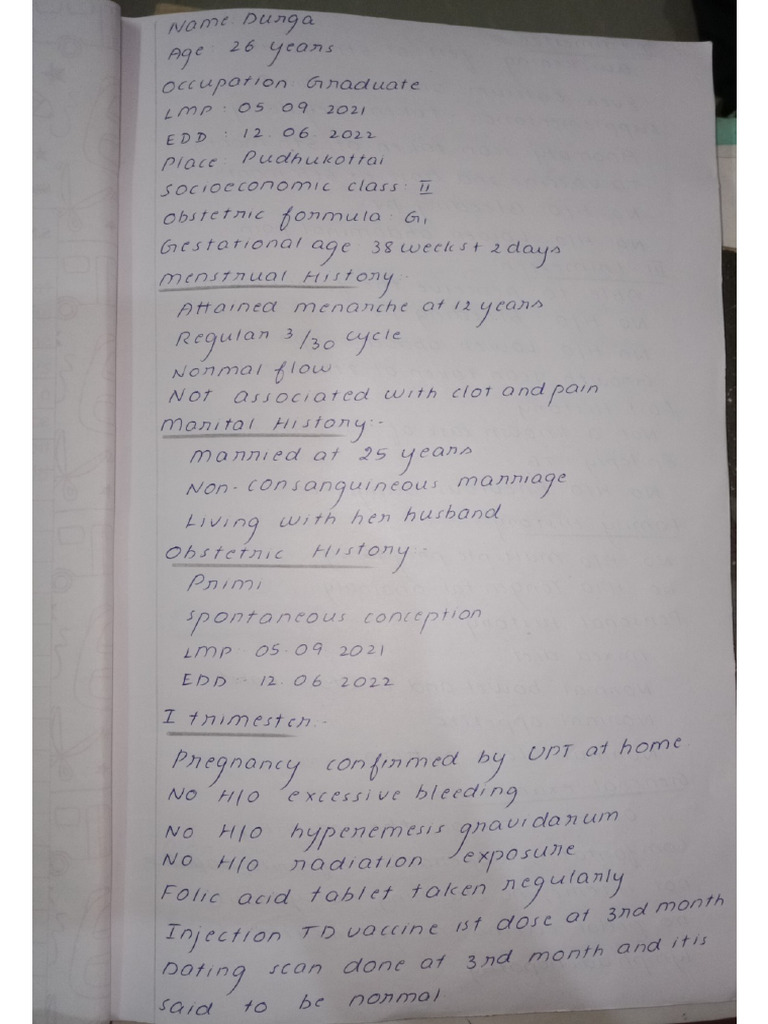 Name: Durga
Age: 26 years
Occupation: Graduate
LMP: 05.09.2021
EDD: 12.06.2022
Place: Pudhukottai
Socioeconomic class: II
Obstetric formula: G1
Gestational age: 38 weeks + 2 days
Menstrual History:-
Attained menarche at 12 years
Regular 3/30 cycle
Normal flow
Not associated with clot and pain
Marital History:-
Married at 25 years
Non-consanguineous marriage
Living with her husband
Obstetric History:-
Primi
Spontaneous conception
LMP: 05.09.2021
EDD: 12.06.2022
I trimester:-
Pregnancy confirmed by UPT at home
No H/O excessive bleeding
No H/O hyperemesis gravidarum
No H/O radiation exposure
Folic acid tablet taken regularly
Injection TD vaccine Ist dose at 3rd month
Dating scan done at 3rd month and it is
said to be normal